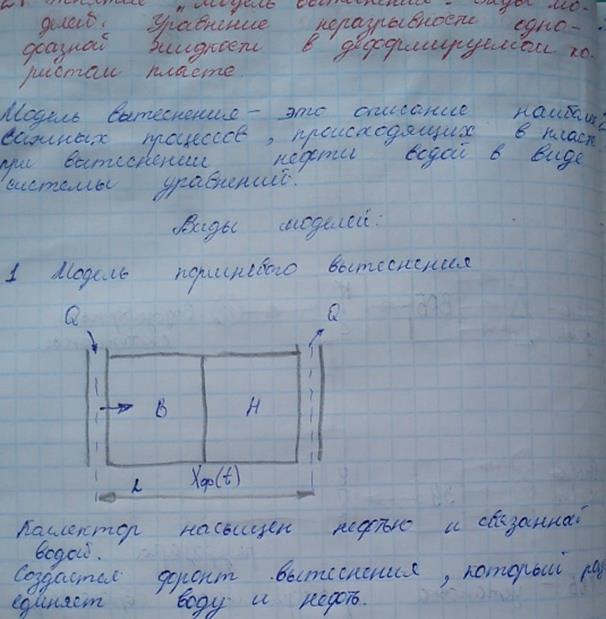 "Модель вытеснения - виды мо-
делей. Уравнение неразрывности одно-
фазной жидкости в деформируемом по-
ристом пласте.
Модель вытеснения - это описание наиболее
важных процессов, происходящих в пласте
при вытеснении нефти водой в виде
системы уравнений.
Виды моделей:
1 Модель поршневого вытеснения
Q Q
В Н
L Xф(t)
Коллектор насыщен нефтью и связанной
водой.
Создается фронт вытеснения, который раз
единяет воду и нефть.